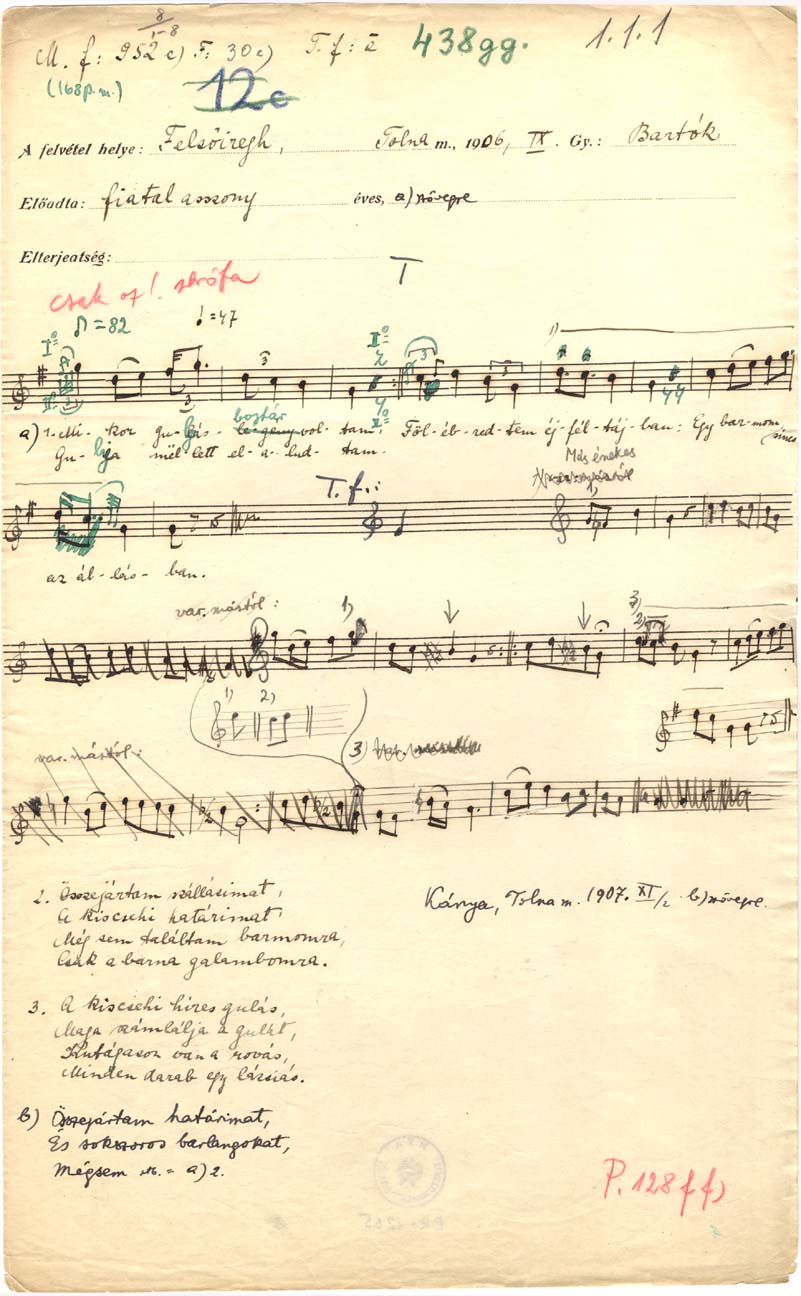 8
1-8
M. f: 952 c) F: 30 c) T. f: 438gg. 1.1.1
(168p.m.)
12c
A felvétel helye: Felsőiregh, Tolna m., 1906, IX. Gy.: Bartók
Előadta: fiatal asszony éves, a) szövegre
Elterjeatség:
T
csak az 1. strófa
♪=82 ♩=47
1)
bojtár
a) 1. Mi- kor gu- lyás- legény vol- tam: Föl- éb- red- tem éj- fél- táj- ban: Egy bar- mom sincs
Gu- lya mël- lett el- a- lud- tam.
Más énekes
T. f.:
az ál- lás- ban.
var. mástól:
1) 3)
2)
1) 2)
var. mástól: 3)
2. Összejártam szállásimat,
A kiscsehi határimat
Még sem találtam barmomra,
Csak a barna galambomra.
Kánya, Tolna m. 1907. XI/2. b) szövegre.
3. A kiscsehi híres gulás,
Maga számlálja a gulát,
Kutágason van a rovás,
Minden darab egy lássás.
b) Összejártam határimat,
És sokszoros barlangokat,
Mégsem = a) 2.
P. 128 ff)